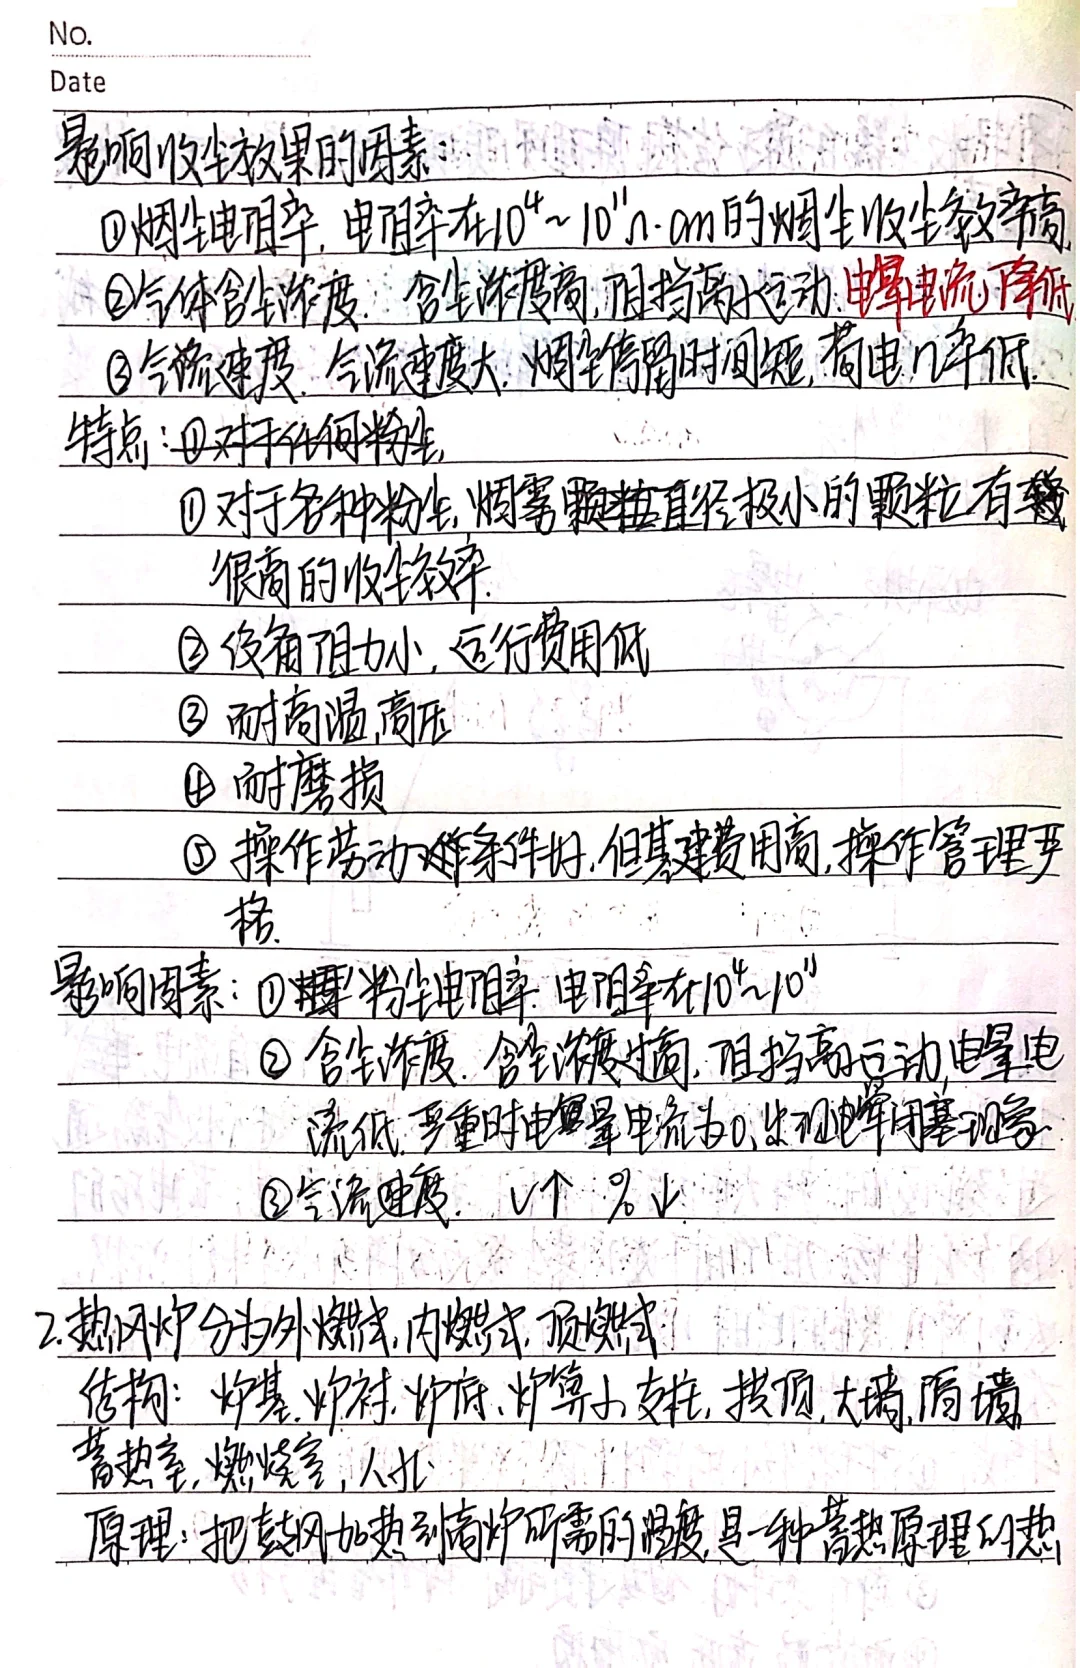 No.
Date
影响收尘效果的因素:
①烟尘电阻率. 电阻率在10⁴~10¹¹Ω·cm的烟尘收尘效率高.
②气体含尘浓度. 含尘浓度高,阻挡离子运动.电晕电流降低
③气流速度. 气流速度大. 烟尘停留时间短,荷电几率低.
特点:①对于任何粉尘,
①对于各种粉尘,烟雾颗粒直径极小的颗粒有
很高的收尘效率.
②设备阻力小,运行费用低
③耐高温,高压
④耐磨损
⑤操作劳动条件好,但基建费用高,操作管理严
格.
影响因素:①粉尘电阻率.电阻率在10⁴~10¹¹
②含尘浓度.含尘浓度过高,阻挡离子运动,电晕电
流低.严重时电晕电流为0,出现电晕闭塞现象.
③气流速度. v↑ %↓
2.热风炉分为外燃式,内燃式,顶燃式
结构:炉基、炉衬、炉底、炉箅子,支柱,拱顶,大墙,隔墙,
蓄热室,燃烧室,人孔
原理:把鼓风加热到高炉所需的温度,是一种蓄热原理的热